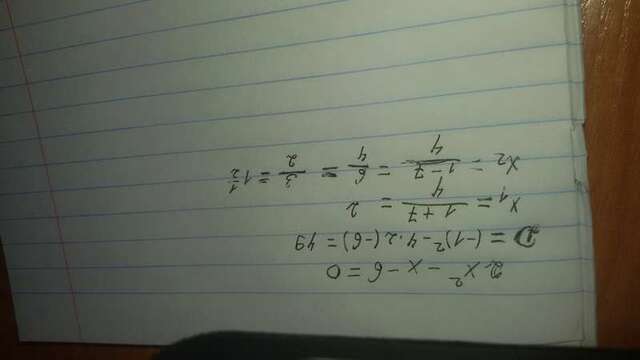 2x² - x - 6 = 0
D = (-1)² - 4·2(-6) = 49
x₁ = (1+7)/4 = 2
x₂ = (1-7)/4 = 6/4 = 3/2 = 1 1/2